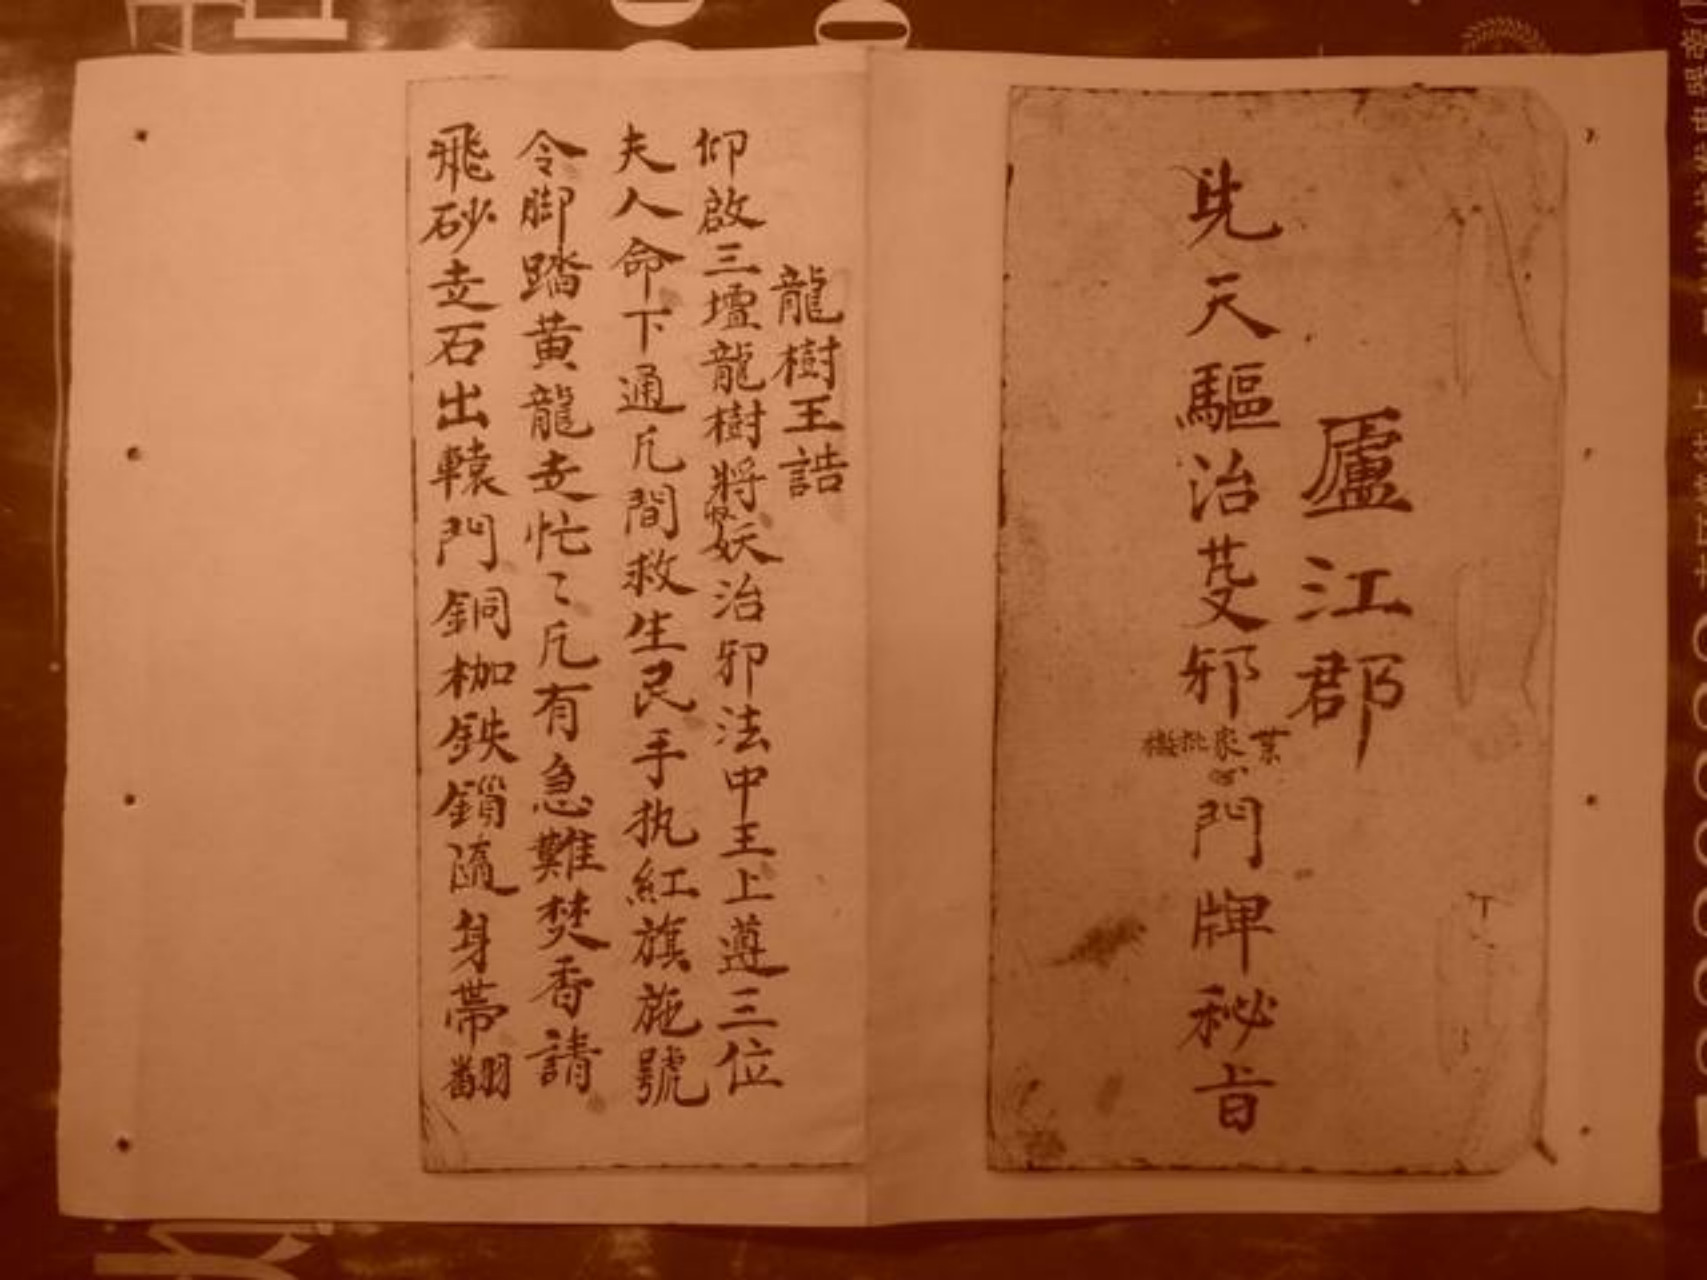 廬江郡
先天驅治茇邪
門牌秘旨
龍樹王誥
仰啟三壇龍樹將收妖治邪法中王上遵三位
夫人命下通凡間救生民手执紅旗施號
令脚踏黃龍走忙〻凡有急難焚香請
飛砂走石出轅門銅枷鉄鎖随身帶翻